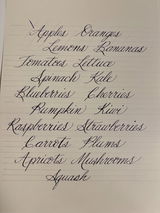 Apples Oranges
Lemons Bananas
Tomatoes Lettuce
Spinach Kale
Blueberries Cherries
Pumpkin Kiwi
Raspberries Strawberries
Carrots Plums
Apricots Mushrooms
Squash